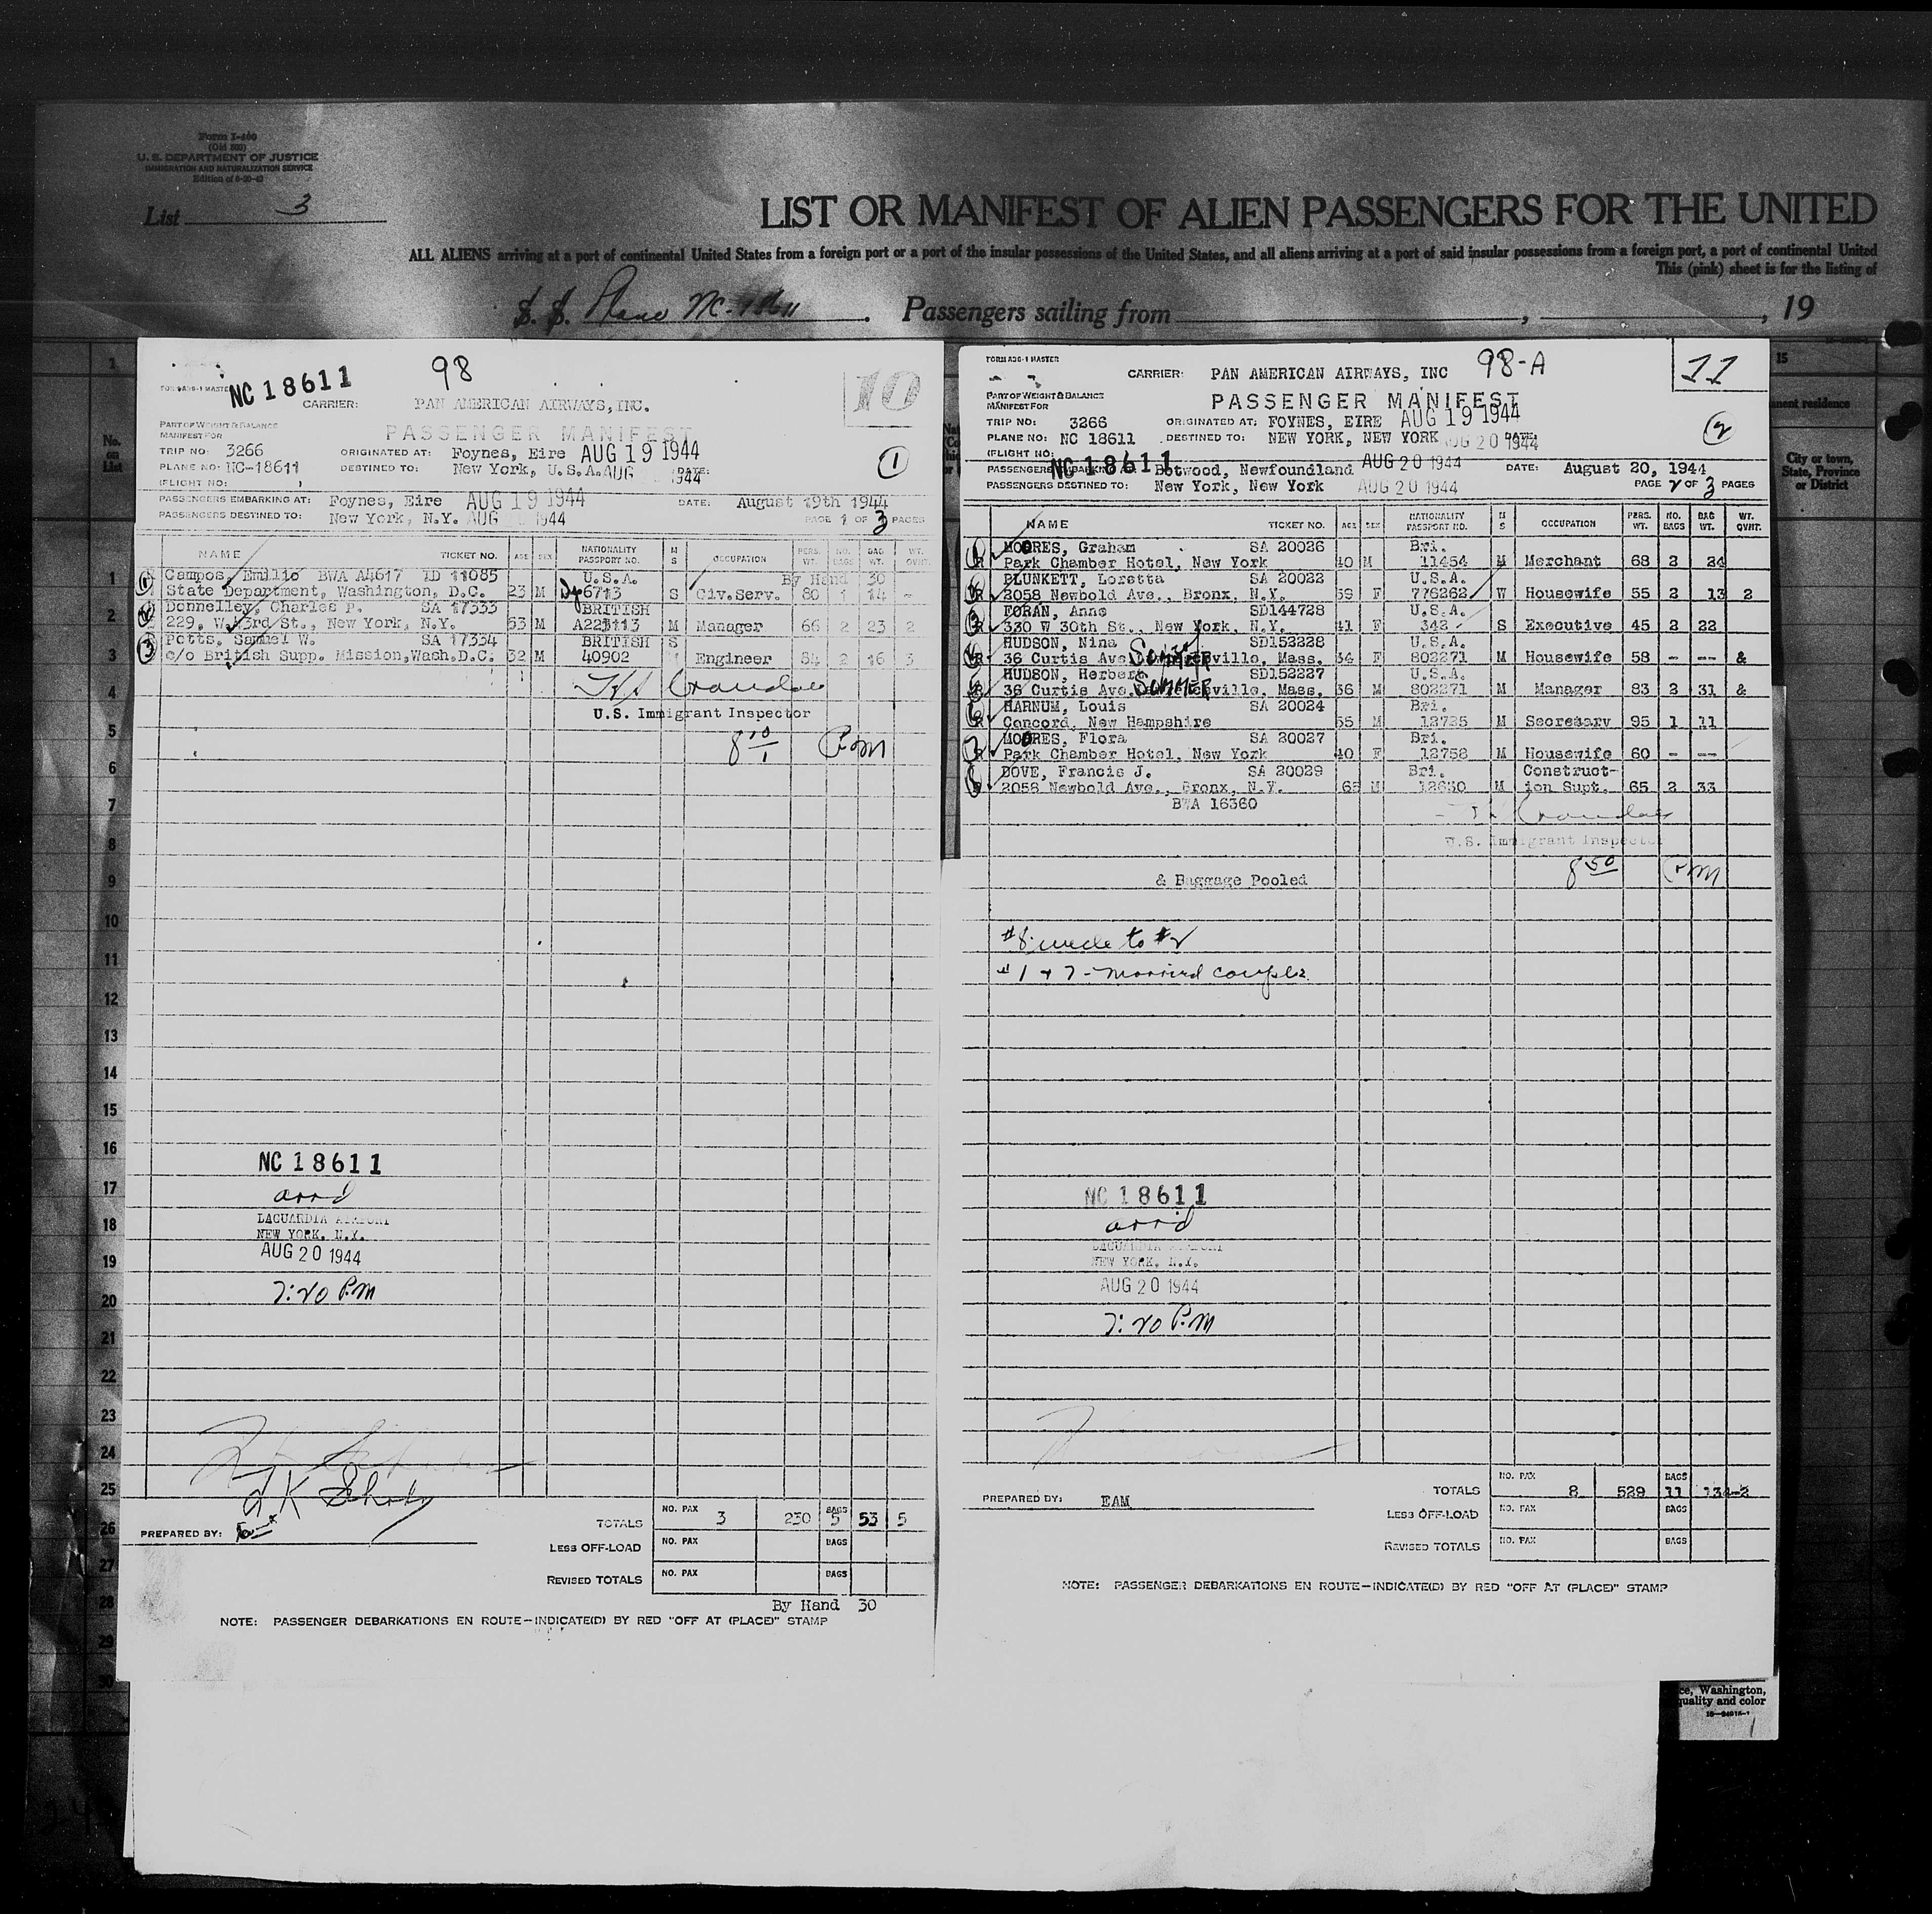 Form I-460
(Old 500)
U. S. DEPARTMENT OF JUSTICE
IMMIGRATION AND NATURALIZATION SERVICE
List 3
LIST OR MANIFEST OF ALIEN PASSENGERS FOR THE UNITED
ALL ALIENS arriving at a port of continental United States from a foreign port or a port of the insular possessions of the United States, and all aliens arriving at a port of said insular possessions from a foreign port, a port of continental United
This (pink) sheet is for the listing of
S. S. Plane Passengers sailing from , , 19
No. on List
1
2
3
4
5
6
7
8
9
10
11
12
13
14
15
16
17
18
19
20
21
22
23
24
25
26
27
28
29
30
NC 18611
98
10
CARRIER: PAN AMERICAN AIRWAYS, INC.
PART OF WEIGHT & BALANCE
MANIFEST FOR
PASSENGER MANIFEST
TRIP NO: 3266 ORIGINATED AT: Foynes, Eire AUG 19 1944
1
PLANE NO: NC-18611 DESTINED TO: New York, U.S.A. AUG 1944 DATE:
(FLIGHT NO: )
PASSENGERS EMBARKING AT: Foynes, Eire AUG 19 1944 DATE: August 19th 1944
PASSENGERS DESTINED TO: New York, N.Y. AUG 1944 PAGE 1 OF 3 PAGES
NAME TICKET NO. AGE SEX NATIONALITY PASSPORT NO. M S OCCUPATION PERS. WT. NO. BAGS BAG WT. WT. OVHT.
1 Campos, Emilio BWA A4617 TD 11085 U.S.A. By Hand 30
State Department, Washington, D.C. 23 M 6713 S Civ.Serv. 80 1 14 -
2 Donnelley, Charles P. SA 17333 BRITISH
229, W.43rd St., New York, N.Y. 53 M M Manager 66 2 23 2
3 Potts, Samuel W. SA 17334 BRITISH S
c/o British Supp. Mission, Wash.D.C. 32 M 40902 Engineer 84 2 16 3
U.S. Immigrant Inspector
8 10 P.M
NC 18611
arrd
LAGUARDIA AIRPORT
NEW YORK, N.Y.
AUG 20 1944
7:20 P.M
PREPARED BY:
TOTALS NO. PAX 3 230 BAGS 5 53 5
LESS OFF-LOAD NO. PAX BAGS
REVISED TOTALS NO. PAX BAGS
By Hand 30
NOTE: PASSENGER DEBARKATIONS EN ROUTE-INDICATE(D) BY RED "OFF AT (PLACE)" STAMP
FORM A30-1 MASTER
98-A
11
CARRIER: PAN AMERICAN AIRWAYS, INC
PART OF WEIGHT & BALANCE
MANIFEST FOR
PASSENGER MANIFEST
TRIP NO: 3266 ORIGINATED AT: FOYNES, EIRE AUG 19 1944
2
PLANE NO: NC 18611 DESTINED TO: NEW YORK, NEW YORK AUG 20 1944 DATE:
(FLIGHT NO:
NC 18611
PASSENGERS EMBARKING AT: Botwood, Newfoundland AUG 20 1944 DATE: August 20, 1944
PASSENGERS DESTINED TO: New York, New York AUG 20 1944 PAGE 2 OF 3 PAGES
NAME TICKET NO. AGE SEX NATIONALITY PASSPORT NO. M S OCCUPATION PERS. WT. NO. BAGS BAG WT. WT. OVHT.
1 MOORES, Graham SA 20026 Bri.
Park Chamber Hotel, New York 40 M 11454 M Merchant 68 2 24
2 PLUNKETT, Loretta SA 20022 U.S.A.
2058 Newbold Ave., Bronx, N.Y. 59 F 776262 W Housewife 55 2 13 2
3 FORAN, Anne SD144728 U.S.A.
330 W 30th St., New York, N.Y. 41 F 342 - S Executive 45 2 22
4 HUDSON, Nina SD152228 U.S.A.
36 Curtis Ave. SOMMERville, Mass. 34 F 802271 M Housewife 58 - -- &
5 HUDSON, Herbert SD152227 U.S.A.
36 Curtis Ave. SOMMERville, Mass. 36 M 802271 M Manager 83 2 31 &
6 HARNUM, Louis SA 20024 Bri.
Concord, New Hampshire 55 M 12735 M Secretary 95 1 11
7 MOORES, Flora SA 20027 Bri.
Park Chamber Hotel, New York 40 F 12758 M Housewife 60 - --
8 DOVE, Francis J. SA 20029 Bri. Construct-
2058 Newbold Ave., Bronx, N.Y. 65 M 12630 M ion Supt. 65 2 33
BWA 16360
U.S. Immigrant Inspector
8 50 P.M
& Baggage Pooled
#8 uncle to #2
#1 + 7 - married couple.
NC 18611
arrid
LAGUARDIA AIRPORT
NEW YORK, N.Y.
AUG 20 1944
7:20 P.M
PREPARED BY: EAM
TOTALS NO. PAX 8 529 BAGS 11 134-2
LESS OFF-LOAD NO. PAX BAGS
REVISED TOTALS NO. PAX BAGS
NOTE: PASSENGER DEBARKATIONS EN ROUTE-INDICATE(D) BY RED "OFF AT (PLACE)" STAMP
15
anent residence
City or town,
State, Province
or District
ce, Washington,
quality and color